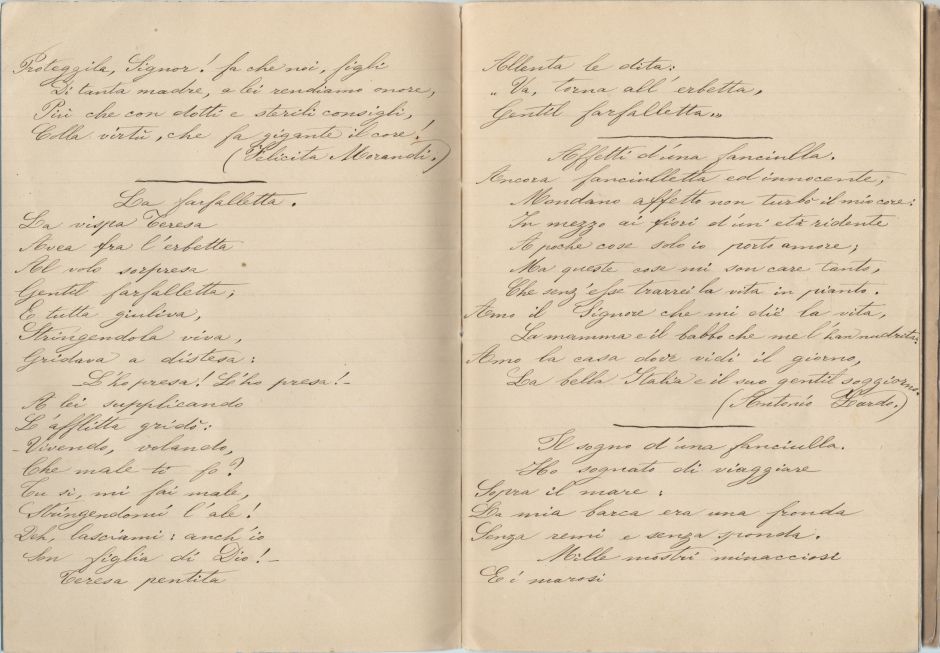 Proteggila, Signor! fa che noi, figli
Di tanta madre, a lei rendiamo onore,
Più che con dotti e sterili consigli,
Colla virtù, che fa gigante il core!
(Felicita Morandi.)
La farfalletta.
La vispa Teresa
Avea fra l'erbetta
Al volo sorpresa
Gentil farfalletta;
E tutta giuliva,
Stringendola viva,
Gridava a distesa:
L'ho presa! L'ho presa!-
A lei supplicando
L'afflitta gridò:
-Vivendo, volando,
Che male ti fo?
Tu si, mi fai male,
Stringendomi l'ale!
Deh, lasciami: anch'io
Son figlia di Dio!-
Teresa pentita
Allenta le dita:
"Va, torna all'erbetta,
Gentil farfalletta,,
Affetti d'una fanciulla.
Ancora fanciulletta ed innocente,
Mondano affetto non turbò il mio core:
In mezzo ai fiori d'un'età ridente
A poche cose solo io porto amore;
Ma queste cose mi son care tanto,
Che senz'esse trarrei la vita in pianto.
Amo il Signore che mi diè la vita,
La mamma e il babbo che me l'han nudrita:
Amo la casa dove vidi il giorno,
La bella Italia e il suo gentil soggiorno.
(Antonio Zardo.)
Il sogno d'una fanciulla.
Ho sognato di viaggiare
Sopra il mare:
La mia barca era una fronda
Senza remi e senza sponda.
Mille mostri minacciosi
E i marosi